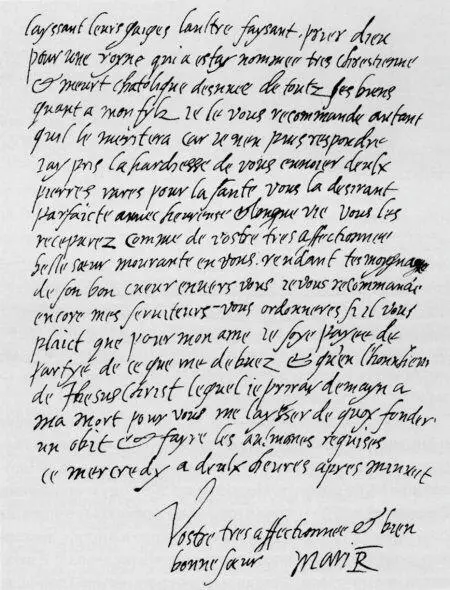 layssant leurs gaiges laultre faysant prier dieu
pour une royne qui a estay nommee tres chrestienne
& meurt chatolique desnuee de toutz ses biens
quant a mon fylz ie le vous recommande autant
quil le meritera car ie nen puis respondre
iay pris la hardiesse de vous enuoier deulx
pierres rares pour la sante vous la desirant
parfaicte auuec heureuse & longue vie vous les
receuurez comme de vostre tres affectionnee
belle sœur mourante en vous rendant tesmoygnasge
de son bon cueur enuers vous ie vous recommande
encore mes seruiteurs vous ordonneres si il vous
plaict que pour mon ame ie soye payee de
partye de ce que me debuez & qu'en l'honnheur
de Jhesus Christ lequel ie priray demayn a
ma mort pour vous me laysser de quoy fonder
un obit & fayre les aumones requises
ce mercredy a deulx heures apres minuit
Vostre tres affectionnee & bien
bonne sœur Mari R